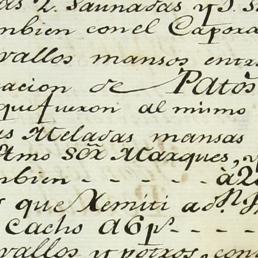 as 2. Saunadas y 3. S
mbien con el Capora
vallos mansos entr
acion de Patos
que fueron al mismo
as Meladas mansas
Amo Sor. Marques, y
mbien - - - - - - à 2
s que Remiti a dn. J
Cacho a 6p - - - -
vallos y potros, con